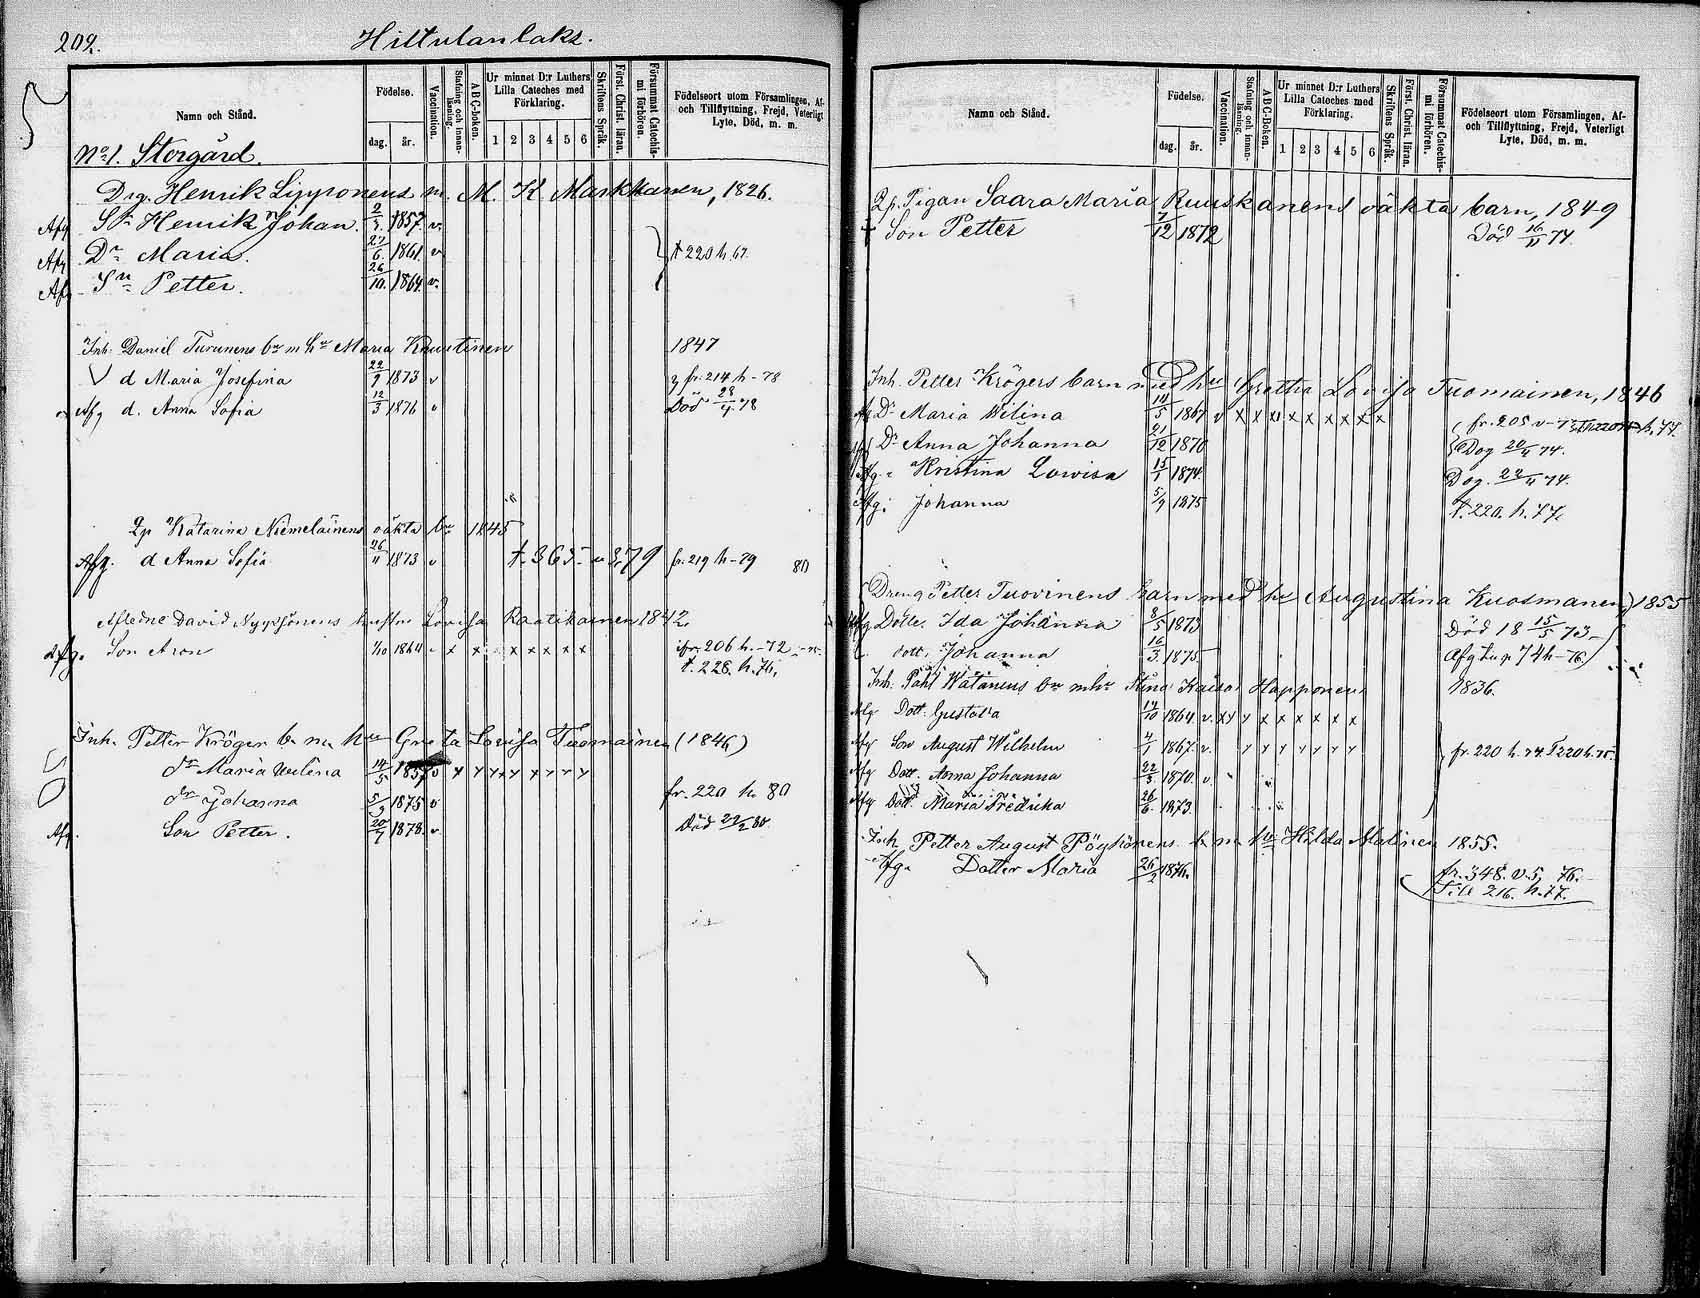 209.
Hiltulanlaks.
Namn och Stånd.
Födelse.
dag. år.
Vaccination.
Stafning och innan-läsning.
A B C-boken.
Ur minnet D:r Luthers Lilla Cateches med Förklaring.
1 2 3 4 5 6
Skriftens Språk.
Först. Christ. läran.
Försummat Catechis-mi förhören.
Födelseort utom Församlingen, Af- och Tillflyttning, Frejd, Veterligt Lyte, Död, m. m.
No 1. Storgård.
Drg. Henrik Lipponens m. M. K. Markkanen, 1826.
Afg Sn Henrik Johan. 2/3. 1857. v.
Afg Dr Maria. 27/6. 1861. v † 220 h. 67
Afg Sn Petter. 26/10. 1864. v.
Inh. Daniel Turunens bn m hu Maria Knuutinen 1847
d Maria Josefina 22/9 1873 v fr. 214 h - 78
Afg d. Anna Sofia 12/3 1876 v Död 28/4 78
Katarina Niemeläinens oäkta bn 1845
Afg. d Anna Sofia 26/11 1873 v t. 363 79 fr. 219 h - 79 80
Aflidne David hustru Lovisa Raatikainen 1842
Afg. Son Aron 1/10 1864 v x x x x x x x fr. 206 h. - 72
t. 228. h. 76,
Inh. Petter Kröger b. m. hu Greta Lovisa Tuomainen (1846)
dr Maria Velina 14/5 1857 v x x x x x x x x
dr Johanna 5/9 1875 v fr. 220 h. 80
Afg. Son Petter. 20/7 1878. v. Död 22/2 80.
Namn och Stånd.
Födelse.
dag. år.
Vaccination.
Stafning och innan-läsning.
A B C-Boken.
Ur minnet D:r Luthers Lilla Cateches med Förklaring.
1 2 3 4 5 6
Skriftens Språk.
Först. Christ. läran.
Försummat Catechis-mi förhören.
Födelseort utom Församlingen, Af- och Tillflyttning, Frejd, Veterligt Lyte, Död, m. m.
Pigan Saara Maria Ruuskanens oäkta barn, 1849
† Son Petter 7/12 1872 Död 16/11 74.
Inh. Petter Krögers barn med hu Gretha Lovisa Tuomainen, 1846
Afg Dr Maria Wilina 14/5 1867 v x x x x x x x x x fr. 205 v - 77
Afg Dr Anna Johanna 21/12 1870 Dog 20/11 74.
Afg. " Kristina Lowisa 15/1 1874 Dog. 22/11 74.
Afg. Johanna 5/9 1875 t. 220. h. 77.
Dreng Petter Tuovinens barn med hu Augustina Kuosmanen, 1855
Afg Dotte. Ida Johanna 8/5 1873 Död 18 15/5 73
dott. Johanna 16/3. 1875 Afg t. 74 h - 76
Inh. Påhl Watanens bn m hu Stina Kaisa Happonen 1836.
Afg Dott. Gustava 14/10 1864 v. x x x x x x x x x
Afg Son August Wilhelm 4/1 1867. v. x x x x x x x fr. 220 h. 74 T 220 h. 75.
Afg Dott. Anna Johanna 22/3 1870. v
Afg Dott. Maria Fredrika 26/6. 1873.
Inh. Petter August Pöyhönens b. m. hu Hilda Malinen 1855.
Afg. Dotter Maria 26/2 1876. fr. 348. v. 5, 76.
Till 216. h. 77.